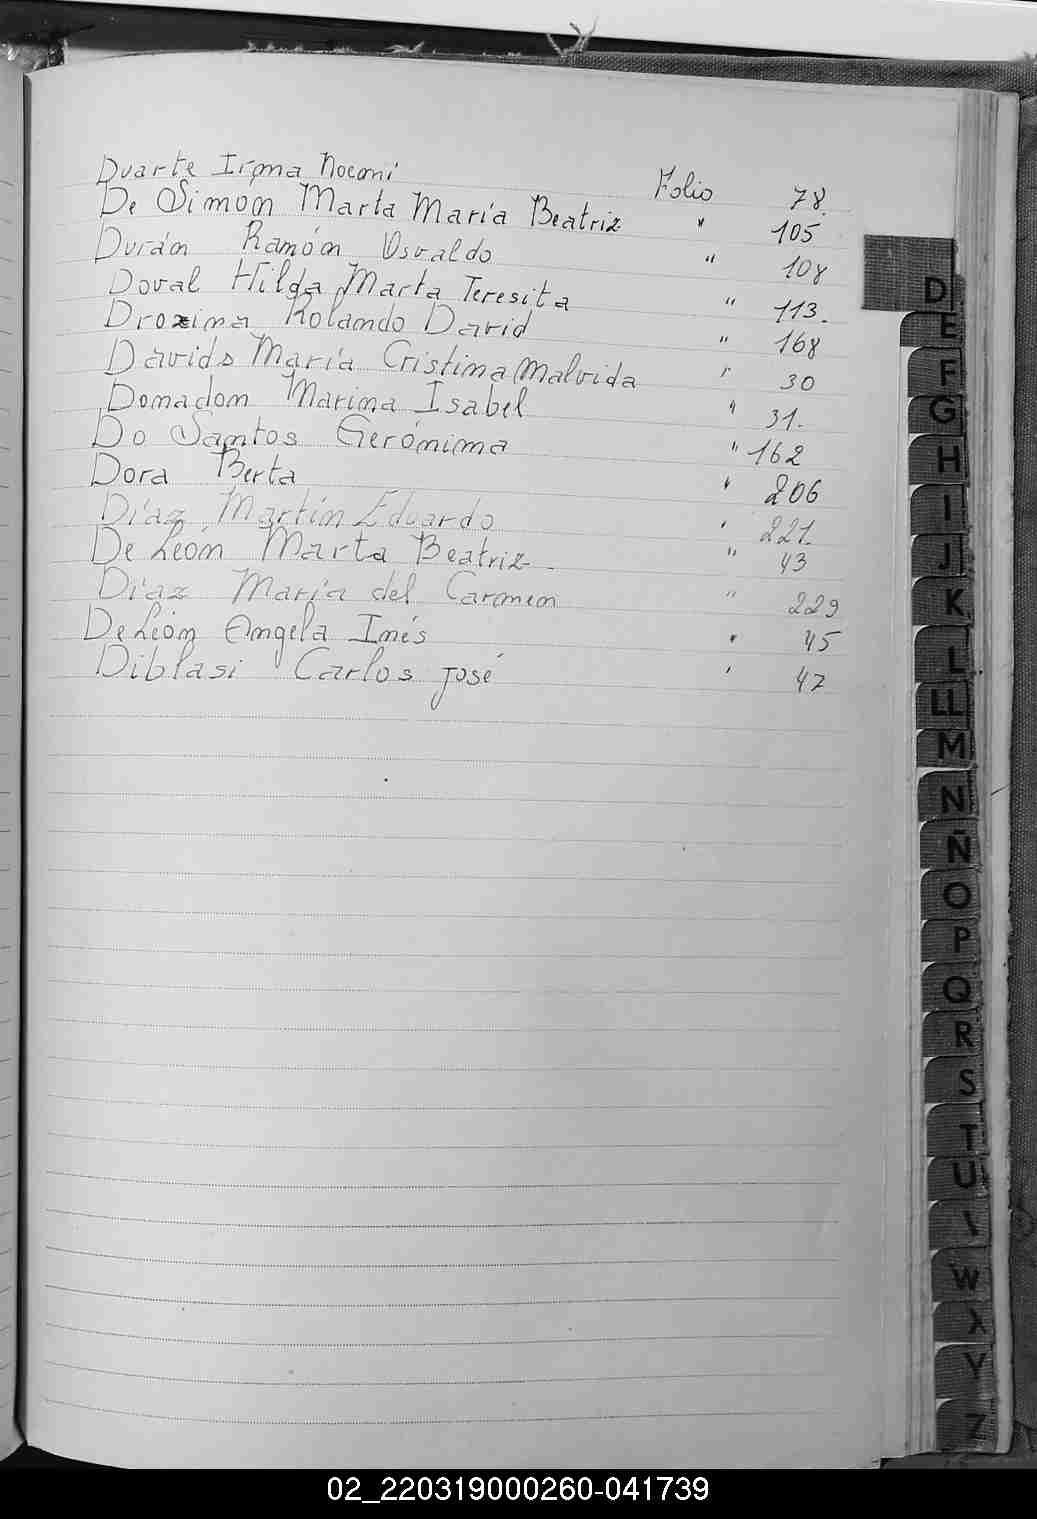 Duarte Irma Noemi Folio 78.
De Simon Marta María Beatriz " 105
Durán Ramón Osvaldo " 108
Doval Hilda Marta Teresita " 113.
Droxima Rolando David " 168
Davids María Cristina Malvida " 30
Donadon Marina Isabel " 31.
Do Santos Gerónima " 162
Dora Berta " 206
Díaz Martín Eduardo " 221.
De León Marta Beatriz. " 43
Díaz María del Carmen " 229
De León Angela Inés " 45
Diblasi Carlos José " 47
D
E
F
G
H
I
J
K
L
LL
M
N
Ñ
O
P
Q
R
S
T
U
W
X
Y
Z
02_220319000260-041739